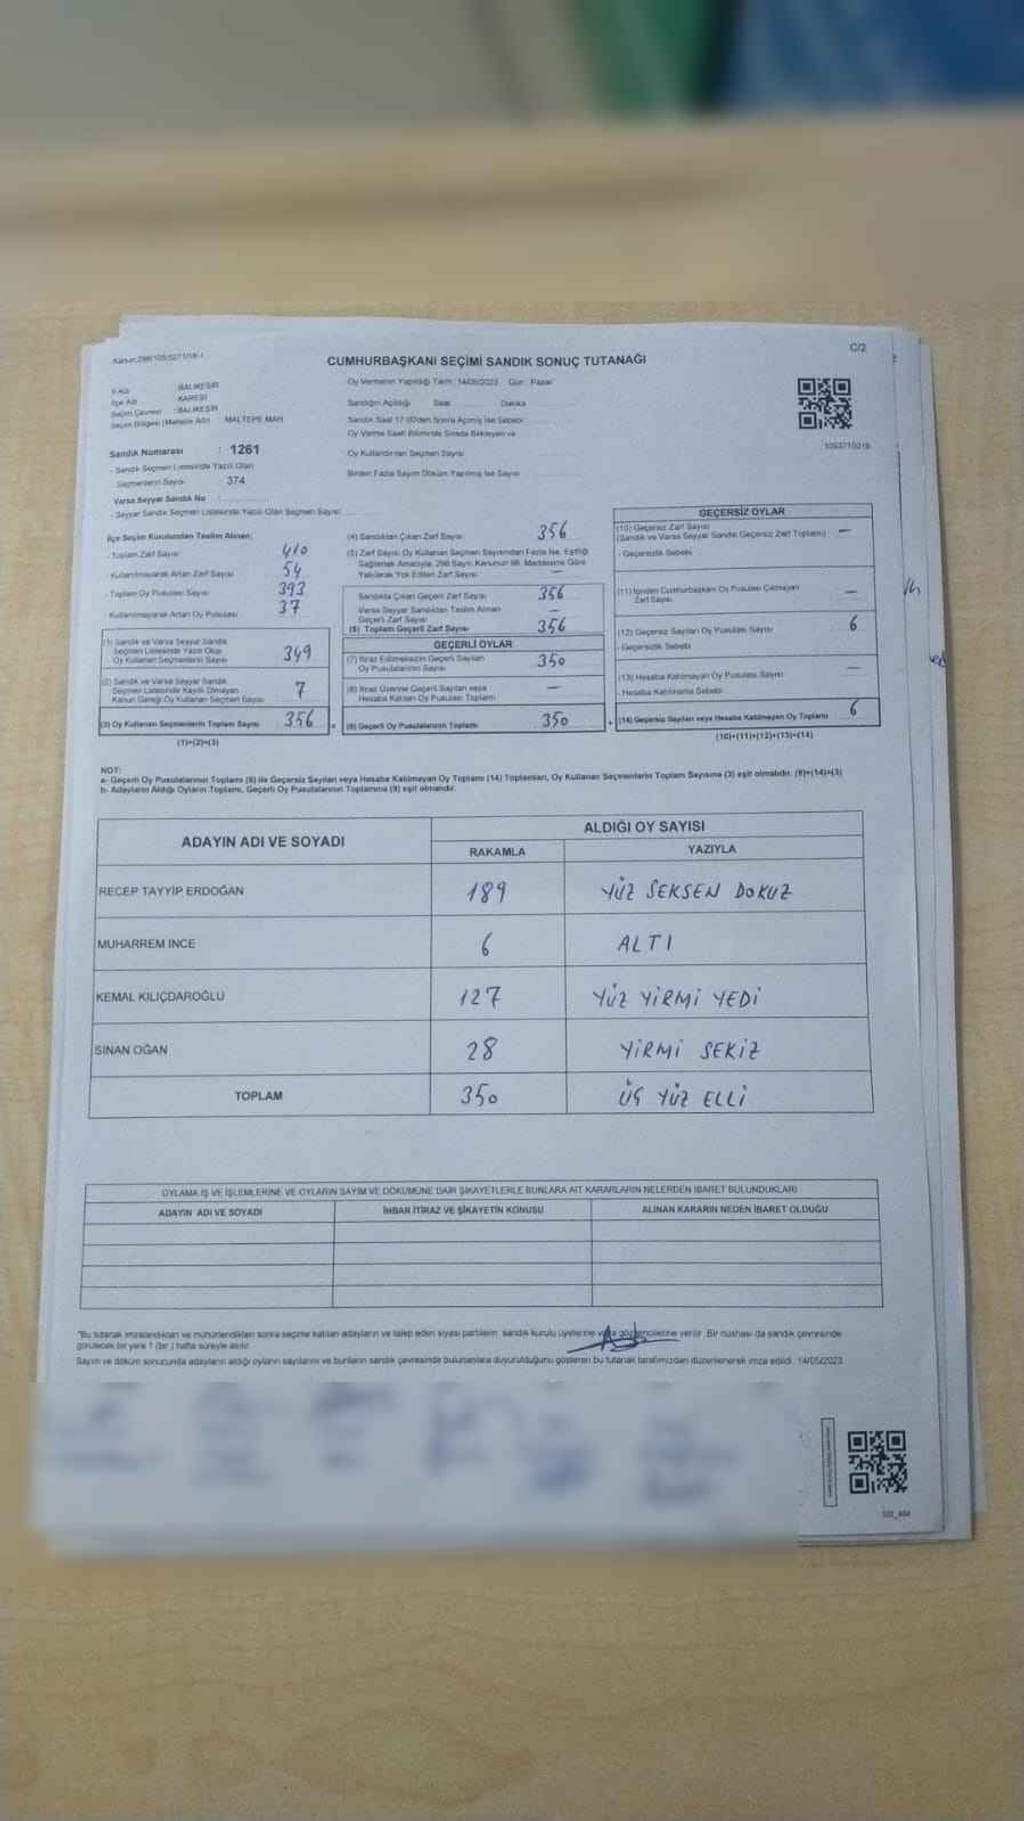 C/2
CUMHURBAŞKANI SEÇİMİ SANDIK SONUÇ TUTANAĞI
İl Adı : BALIKESİR
İlçe Adı : KARESİ
Seçim Çevresi : BALIKESİR
Seçim Bölgesi (Mahalle Adı) : MALTEPE MAH
Sandık Numarası : 1261
- Sandık Seçmen Listesinde Yazılı Olan
Seçmenlerin Sayısı : 374
Varsa Seyyar Sandık No :
- Seyyar Sandık Seçmen Listesinde Yazılı Olan Seçmen Sayısı
Oy Vermenin Yapıldığı Tarih: 14/05/2023 Gün: Pazar
Sandığın Açıldığı Saat Dakika
Sandık Saat 17.00'den Sonra Açılmış İse Sebebi
Oy Verme Saati Bitiminde Sırada Bekleyen ve
Oy Kullandırılan Seçmen Sayısı
Birden Fazla Sayım Döküm Yapılmış İse Sayısı
İlçe Seçim Kurulundan Teslim Alınan;
- Toplam Zarf Sayısı 410
Kullanılmayarak Artan Zarf Sayısı 54
- Toplam Oy Pusulası Sayısı 393
Kullanılmayarak Artan Oy Pusulası 37
(1) Sandık ve Varsa Seyyar Sandık
Seçmen Listesinde Yazılı Olup
Oy Kullanan Seçmenlerin Sayısı 349
(2) Sandık ve Varsa Seyyar Sandık
Seçmen Listesinde Kayıtlı Olmayan
Kanun Gereği Oy Kullanan Seçmen Sayısı 7
(3) Oy Kullanan Seçmenlerin Toplam Sayısı 356
(1)+(2)=(3)
(4) Sandıktan Çıkan Zarf Sayısı 356
(5) Zarf Sayısı Oy Kullanan Seçmen Sayısından Fazla İse, Eşitliği
Sağlamak Amacıyla, 298 Sayılı Kanunun 98. Maddesine Göre
Yakılarak Yok Edilen Zarf Sayısı —
Sandıkta Çıkan Geçerli Zarf Sayısı 356
Varsa Seyyar Sandıktan Teslim Alınan
Geçerli Zarf Sayısı —
(6) Toplam Geçerli Zarf Sayısı 356
GEÇERLİ OYLAR
(7) İtiraz Edilmeksizin Geçerli Sayılan
Oy Pusulalarının Sayısı 350
(8) İtiraz Üzerine Geçerli Sayılan veya
Hesaba Katılan Oy Pusulası Toplamı —
(9) Geçerli Oy Pusulalarının Toplamı 350
GEÇERSİZ OYLAR
(10) Geçersiz Zarf Sayısı
(Sandık ve Varsa Seyyar Sandık Geçersiz Zarf Toplamı) —
- Geçersizlik Sebebi
(11) İçinden Cumhurbaşkanı Oy Pusulası Çıkmayan
Zarf Sayısı —
(12) Geçersiz Sayılan Oy Pusulası Sayısı 6
- Geçersizlik Sebebi
(13) Hesaba Katılmayan Oy Pusulası Sayısı —
- Hesaba Katılmama Sebebi
(14) Geçersiz Sayılan veya Hesaba Katılmayan Oy Toplamı 6
(10)+(11)+(12)+(13)=(14)
NOT:
a- Geçerli Oy Pusulalarının Toplamı (9) ile Geçersiz Sayılan veya Hesaba Katılmayan Oy Toplamı (14) Toplamları, Oy Kullanan Seçmenlerin Toplam Sayısına (3) eşit olmalıdır. (9)+(14)=(3)
b- Adayların Aldığı Oyların Toplamı, Geçerli Oy Pusulalarının Toplamına (9) eşit olmalıdır.
ADAYIN ADI VE SOYADI ALDIĞI OY SAYISI
RAKAMLA YAZIYLA
RECEP TAYYİP ERDOĞAN 189 YÜZ SEKSEN DOKUZ
MUHARREM İNCE 6 ALTI
KEMAL KILIÇDAROĞLU 127 YÜZ YİRMİ YEDİ
SİNAN OĞAN 28 YİRMİ SEKİZ
TOPLAM 350 ÜÇ YÜZ ELLİ
OYLAMA İŞ VE İŞLEMLERİNE VE OYLARIN SAYIM VE DÖKÜMÜNE DAİR ŞİKAYETLERLE BUNLARA AİT KARARLARIN NELERDEN İBARET BULUNDUKLARI
ADAYIN ADI VE SOYADI İHBAR İTİRAZ VE ŞİKAYETİN KONUSU ALINAN KARARIN NEDEN İBARET OLDUĞU
"Bu tutanak imzalandıktan ve mühürlendikten sonra seçime katılan adayların ve talep eden siyasi partilerin sandık kurulu üyelerine veya gözlemcilerine verilir. Bir nüshası da sandık çevresinde
görülecek bir yere 1 (bir ) hafta süreyle asılır.
Sayım ve döküm sonucunda adayların aldığı oyların sayılarını ve bunların sandık çevresinde bulunanlara duyurulduğunu gösteren bu tutanak tarafımızdan düzenlenerek imza edildi. 14/05/2023